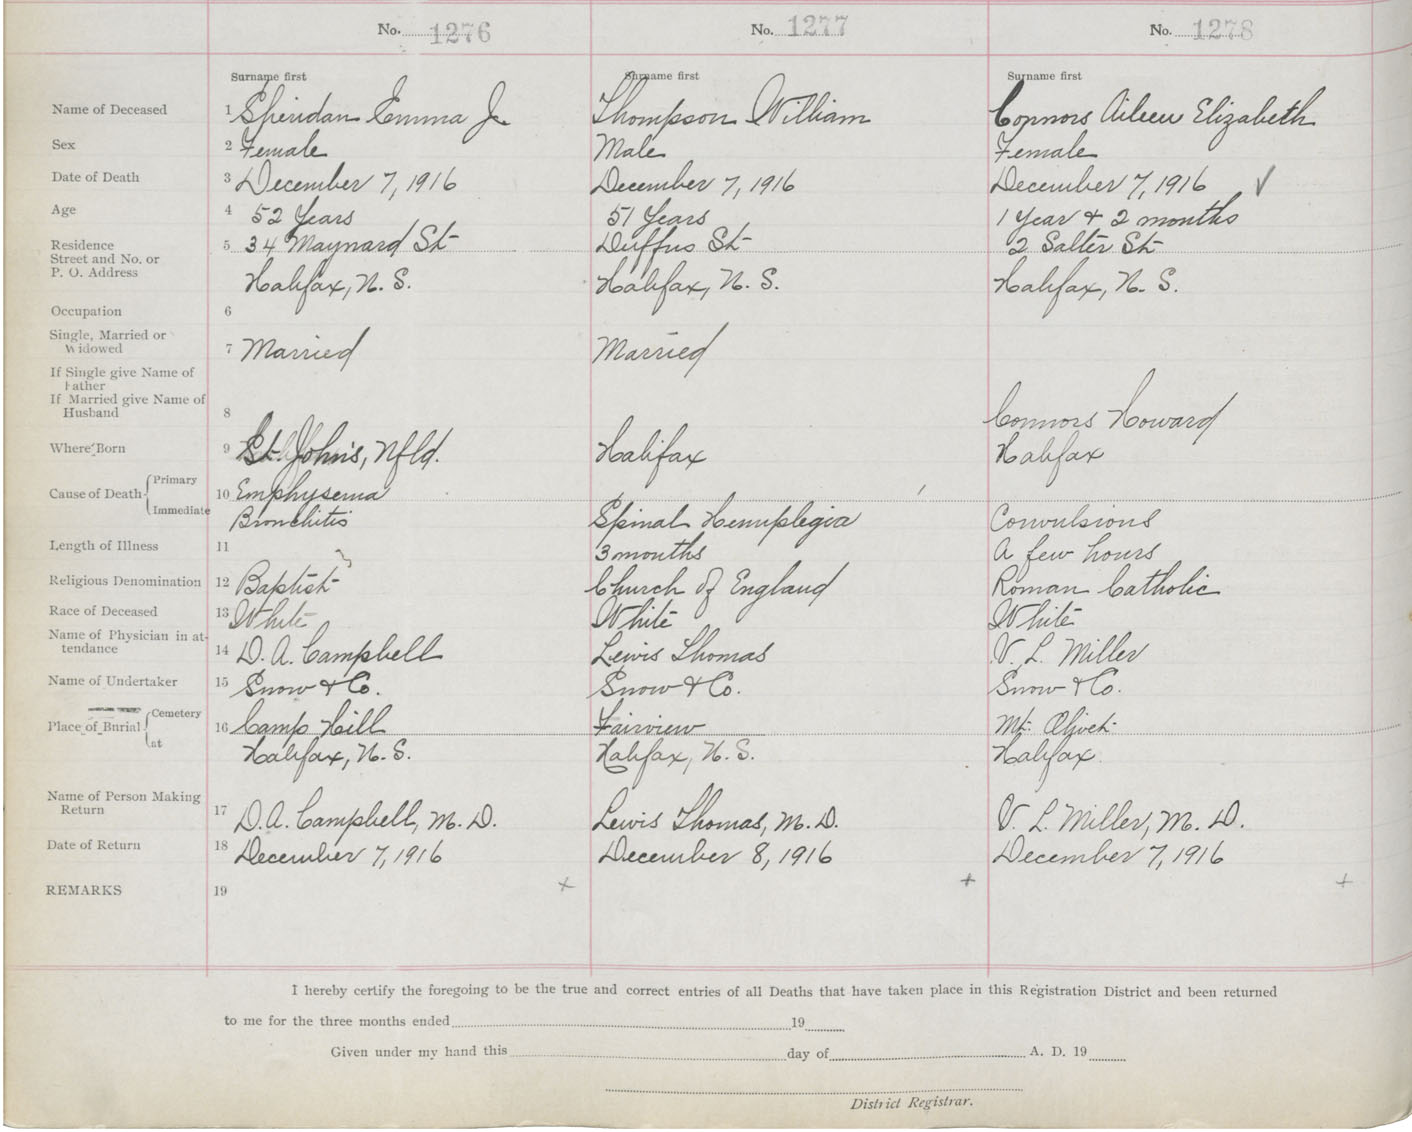 No. 1276 No. 1277 No. 1278
Surname first Surname first Surname first
Name of Deceased 1 Sheridan Emma J. Thompson William Connors Aileen Elizabeth
Sex 2 Female Male Female
Date of Death 3 December 7, 1916 December 7, 1916 December 7, 1916 ✓
Age 4 52 Years 51 Years 1 Year & 2 months
Residence 5 34 Maynard St Duffus St 2 Salter St
Street and No. or
P. O. Address Halifax, N. S. Halifax, N. S. Halifax, N. S.
Occupation 6
Single, Married or
Widowed 7 Married Married
If Single give Name of
Father
If Married give Name of
Husband 8 Connors Howard
Where Born 9 St. John's, Nfld. Halifax Halifax
Cause of Death Primary 10 Emphysema
Immediate Bronchitis Spinal Hemiplegia Convulsions
Length of Illness 11 3 months A few hours
Religious Denomination 12 Baptist Church of England Roman Catholic
Race of Deceased 13 White White White
Name of Physician in at-
tendance 14 D. A. Campbell Lewis Thomas V. L. Miller
Name of Undertaker 15 Snow & Co. Snow & Co. Snow & Co.
Place of Burial Cemetery 16 Camp Hill Fairview Mt. Olivet
at Halifax, N. S. Halifax, N. S. Halifax
Name of Person Making
Return 17 D. A. Campbell, M. D. Lewis Thomas, M. D. V. L. Miller, M. D.
Date of Return 18 December 7, 1916 December 8, 1916 December 7, 1916
REMARKS 19 + + +
I hereby certify the foregoing to be the true and correct entries of all Deaths that have taken place in this Registration District and been returned
to me for the three months ended 19
Given under my hand this day of A. D. 19
District Registrar.